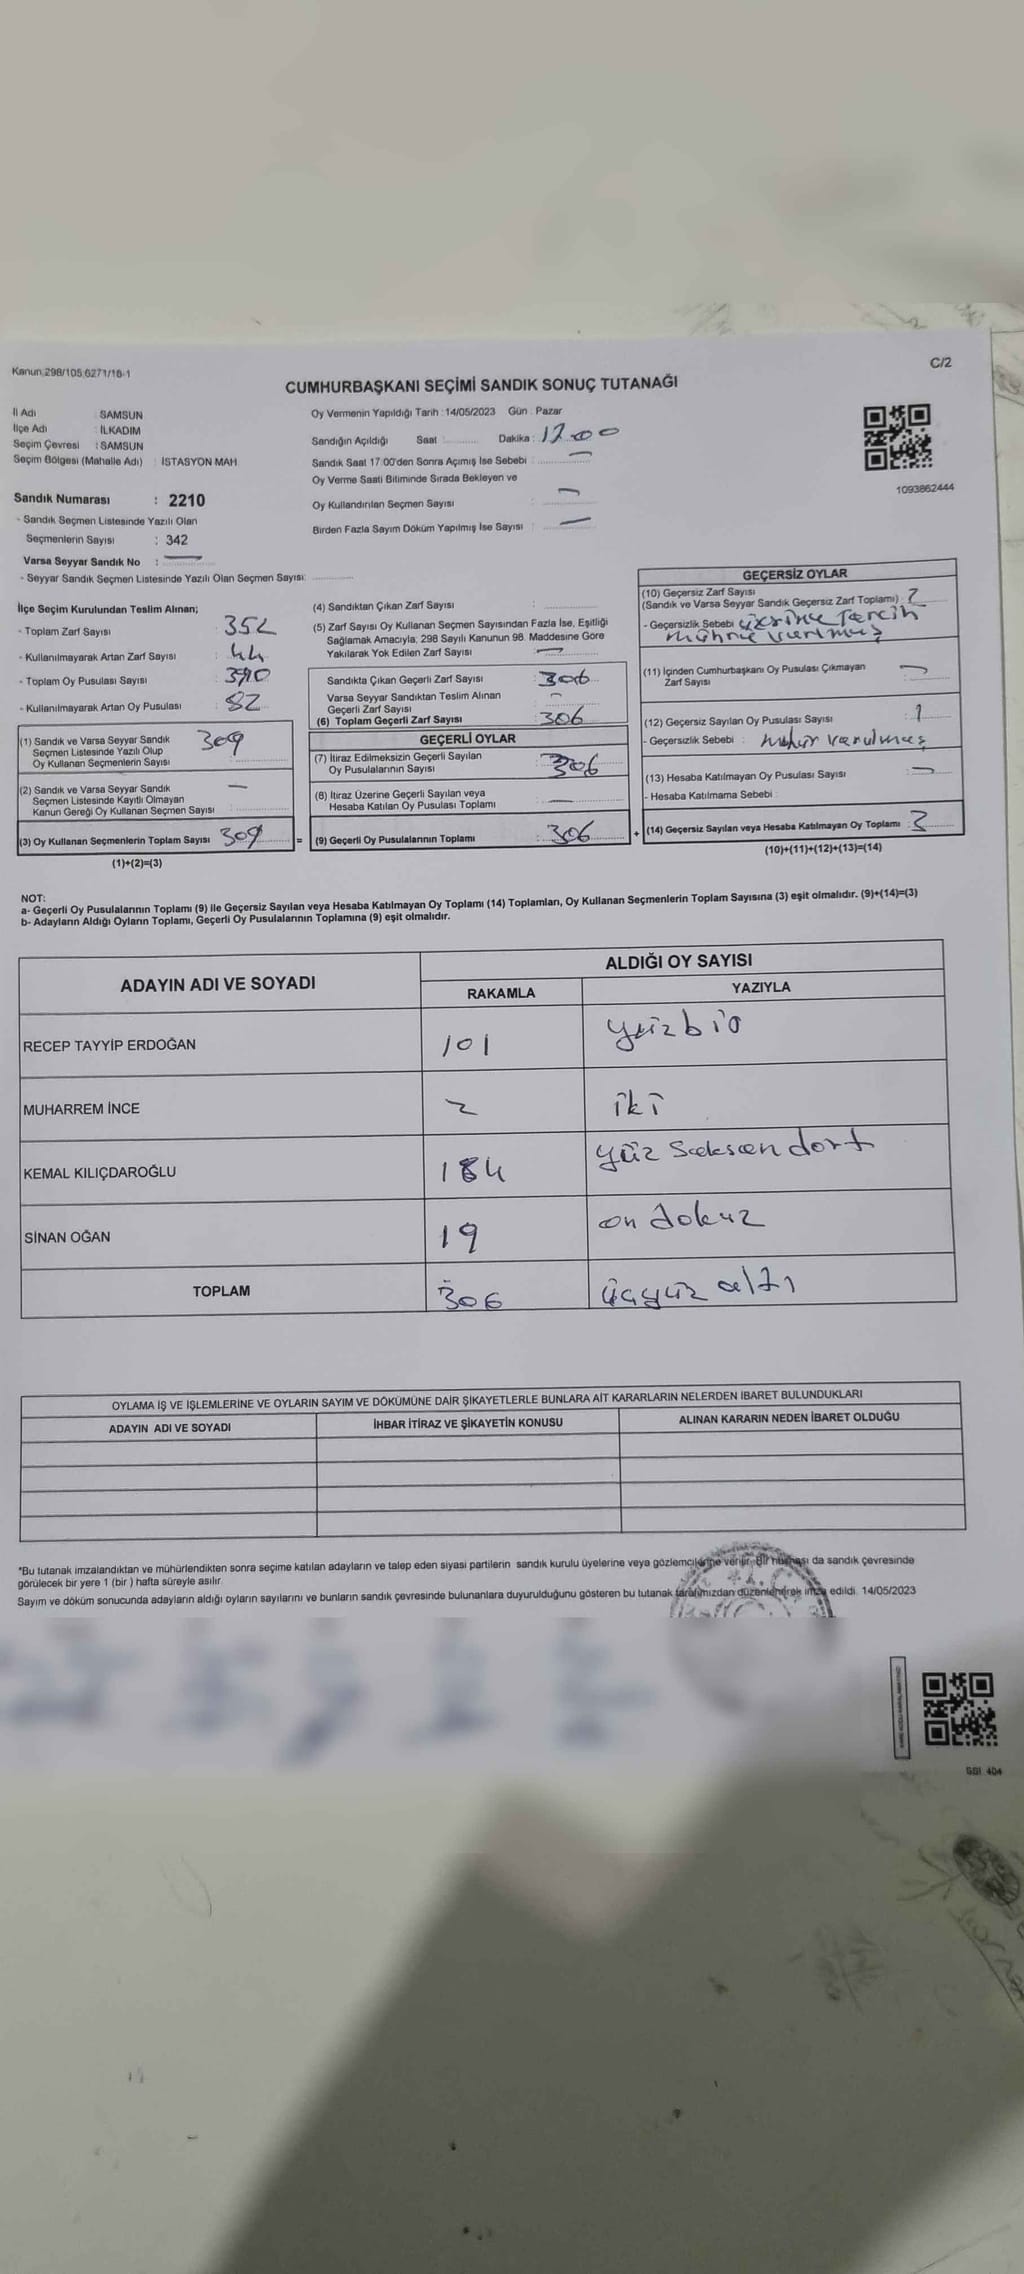 Kanun:298/105;6271/16-1
C/2
CUMHURBAŞKANI SEÇİMİ SANDIK SONUÇ TUTANAĞI
İl Adı : SAMSUN
İlçe Adı : İLKADIM
Seçim Çevresi : SAMSUN
Seçim Bölgesi (Mahalle Adı) : İSTASYON MAH.
Sandık Numarası : 2210
- Sandık Seçmen Listesinde Yazılı Olan
Seçmenlerin Sayısı : 342
Varsa Seyyar Sandık No : —
- Seyyar Sandık Seçmen Listesinde Yazılı Olan Seçmen Sayısı:
Oy Vermenin Yapıldığı Tarih : 14/05/2023 Gün : Pazar
Sandığın Açıldığı Saat : Dakika : 17.00
Sandık Saat 17:00'den Sonra Açımış İse Sebebi : —
Oy Verme Saati Bitiminde Sırada Bekleyen ve
Oy Kullandırılan Seçmen Sayısı : —
Birden Fazla Sayım Döküm Yapılmış İse Sayısı : —
1093862444
İlçe Seçim Kurulundan Teslim Alınan;
- Toplam Zarf Sayısı : 352
- Kullanılmayarak Artan Zarf Sayısı : 44
- Toplam Oy Pusulası Sayısı : 390
- Kullanılmayarak Artan Oy Pusulası : 82
(1) Sandık ve Varsa Seyyar Sandık
Seçmen Listesinde Yazılı Olup
Oy Kullanan Seçmenlerin Sayısı : 309
(2) Sandık ve Varsa Seyyar Sandık
Seçmen Listesinde Kayıtlı Olmayan
Kanun Gereği Oy Kullanan Seçmen Sayısı : —
(3) Oy Kullanan Seçmenlerin Toplam Sayısı : 309
(1)+(2)=(3)
(4) Sandıktan Çıkan Zarf Sayısı :
(5) Zarf Sayısı Oy Kullanan Seçmen Sayısından Fazla İse, Eşitliği
Sağlamak Amacıyla; 298 Sayılı Kanunun 98. Maddesine Göre
Yakılarak Yok Edilen Zarf Sayısı : —
Sandıkta Çıkan Geçerli Zarf Sayısı : 306
Varsa Seyyar Sandıktan Teslim Alınan
Geçerli Zarf Sayısı : —
(6) Toplam Geçerli Zarf Sayısı : 306
GEÇERLİ OYLAR
(7) İtiraz Edilmeksizin Geçerli Sayılan
Oy Pusulalarının Sayısı : 306
(8) İtiraz Üzerine Geçerli Sayılan veya
Hesaba Katılan Oy Pusulası Toplamı : —
= (9) Geçerli Oy Pusulalarının Toplamı : 306
GEÇERSİZ OYLAR
(10) Geçersiz Zarf Sayısı
(Sandık ve Varsa Seyyar Sandık Geçersiz Zarf Toplamı) : 2
- Geçersizlik Sebebi : üzerine Tercih
mührü vurulmuş
(11) İçinden Cumhurbaşkanı Oy Pusulası Çıkmayan
Zarf Sayısı : —
(12) Geçersiz Sayılan Oy Pusulası Sayısı : 1
- Geçersizlik Sebebi : mühür vurulmuş
(13) Hesaba Katılmayan Oy Pusulası Sayısı : —
- Hesaba Katılmama Sebebi :
+ (14) Geçersiz Sayılan veya Hesaba Katılmayan Oy Toplamı : 3
(10)+(11)+(12)+(13)=(14)
NOT:
a- Geçerli Oy Pusulalarının Toplamı (9) ile Geçersiz Sayılan veya Hesaba Katılmayan Oy Toplamı (14) Toplamları, Oy Kullanan Seçmenlerin Toplam Sayısına (3) eşit olmalıdır. (9)+(14)=(3)
b- Adayların Aldığı Oyların Toplamı, Geçerli Oy Pusulalarının Toplamına (9) eşit olmalıdır.
ADAYIN ADI VE SOYADI
ALDIĞI OY SAYISI
RAKAMLA YAZIYLA
RECEP TAYYİP ERDOĞAN 101 yüzbir
MUHARREM İNCE 2 iki
KEMAL KILIÇDAROĞLU 184 yüz seksen dört
SİNAN OĞAN 19 on dokuz
TOPLAM 306 üçyüz altı
OYLAMA İŞ VE İŞLEMLERİNE VE OYLARIN SAYIM VE DÖKÜMÜNE DAİR ŞİKAYETLERLE BUNLARA AİT KARARLARIN NELERDEN İBARET BULUNDUKLARI
ADAYIN ADI VE SOYADI İHBAR İTİRAZ VE ŞİKAYETİN KONUSU ALINAN KARARIN NEDEN İBARET OLDUĞU
*Bu tutanak imzalandıktan ve mühürlendikten sonra seçime katılan adayların ve talep eden siyasi partilerin sandık kurulu üyelerine veya gözlemcilerine verilir. Bir nüshası da sandık çevresinde
görülecek bir yere 1 (bir ) hafta süreyle asılır.
Sayım ve döküm sonucunda adayların aldığı oyların sayılarını ve bunların sandık çevresinde bulunanlara duyurulduğunu gösteren bu tutanak tarafımızdan düzenlenerek imza edildi. 14/05/2023
GBI 404